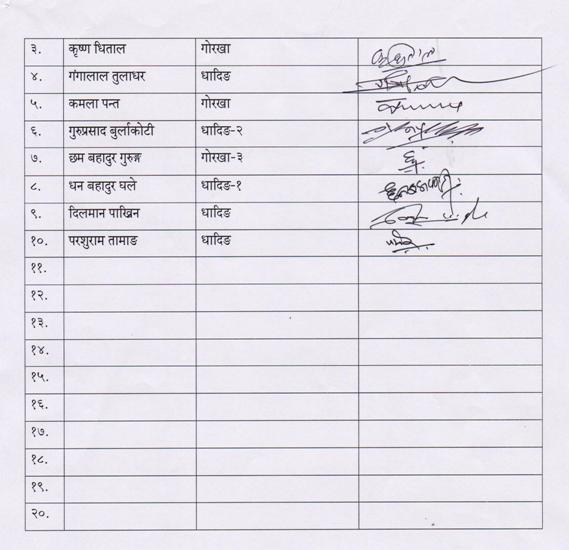 ३. कृष्ण धिताल गोरखा
४. गंगालाल तुलाधर धादिङ
५. कमला पन्त गोरखा
६. गुरुप्रसाद बुर्लाकोटी धादिङ-२
७. छम बहादुर गुरुङ्ग गोरखा-३
८. धन बहादुर घले धादिङ-१
९. दिलमान पाख्रिन धादिङ
१०. परशुराम तामाङ धादिङ
११.
१२.
१३.
१४.
१५.
१६.
१७.
१८.
१९.
२०.